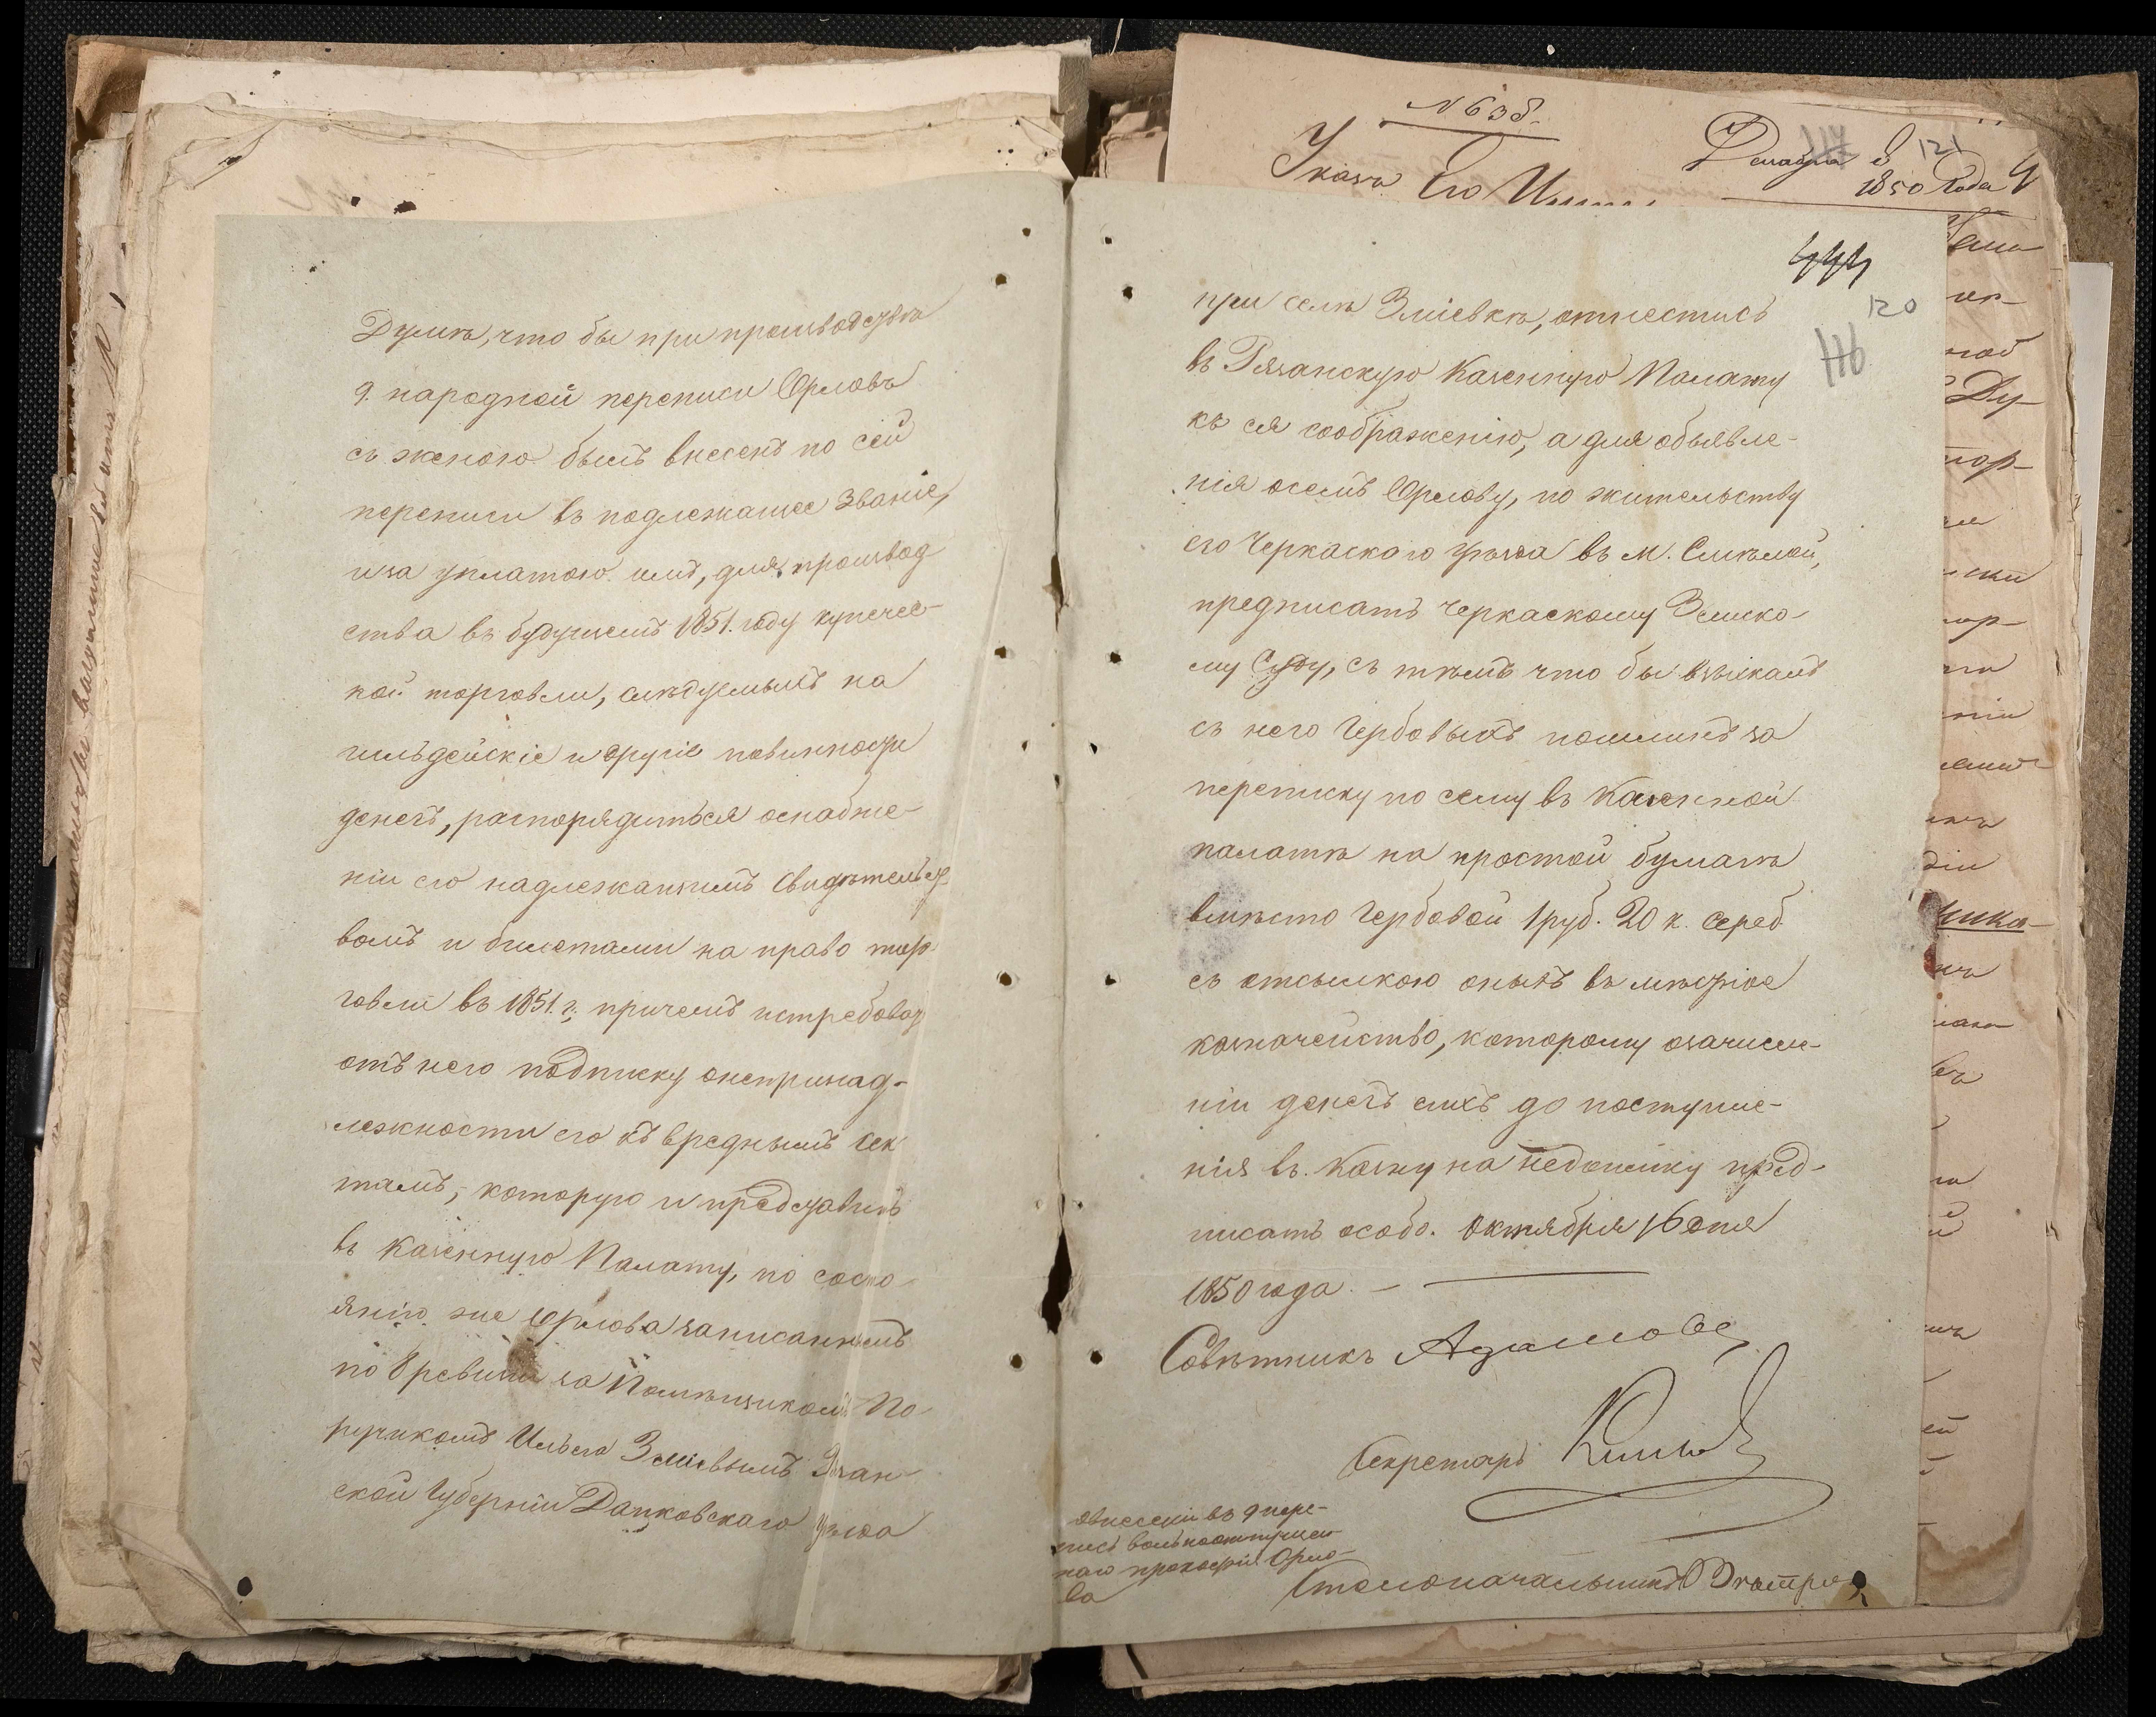 Думѣ, что бы при производствѣ
9. народной переписи Орловъ
съ женою былъ внесенъ по сей
переписи въ подлежащее званіе,
и за уплатою имъ, для производ
ства въ будущемъ 1851. году купечес-
кой торговли, слѣдуемыхъ на
гильдейскіе и другіе повинности
денегъ, распорядиться оснабже-
ніи его надлежащимъ Свидѣтельст
вомъ и билетами на право тор
говли въ 1851. г; причемъ истребовать
отъ него подписку онепринад-
лежности его къ вреднымъ Сек
тамъ, которую и представить
въ Казенную Палату, по состо
янію же Орлова записаннымъ
по 8 ревизіи за Помѣщикомъ По-
ручикомъ Ильею Зміевымъ Рязан-
ской Губерніи Данковскаго уѣзда
444
120
116
при селѣ Зміевкѣ, отнестись
въ Рязанскую Казенную Палату
къ ея соображенію, а для объявле-
нія осемъ Орлову, по жительству
его Черкаскаго уѣзда въ М. Смѣлой,
предписать Черкаскому Земско-
му Суду, съ тѣмъ что бы взыскалъ
съ него Гербовыхъ пошлинъ за
переписку по сему въ Казенной
палатѣ на простой бумагѣ
вмѣсто Гербовой 1 руб. 20 к. сереб.
съ отсылкою оныхъ въ мѣстное
казначейство, которому озачисле-
ніи денегъ сихъ до поступле-
нія въ Казну на недоимку пред-
писать особо. Октября 16 дня
1850 года. —
Совѣтникъ Адамов
Секретарь
Столоначальникъ
овнесеніи въ 9 пере-
пись вольноотпущен-
наго Орло-
ва
N 638.
Указъ Его
Декабря 8
1850 Года
121